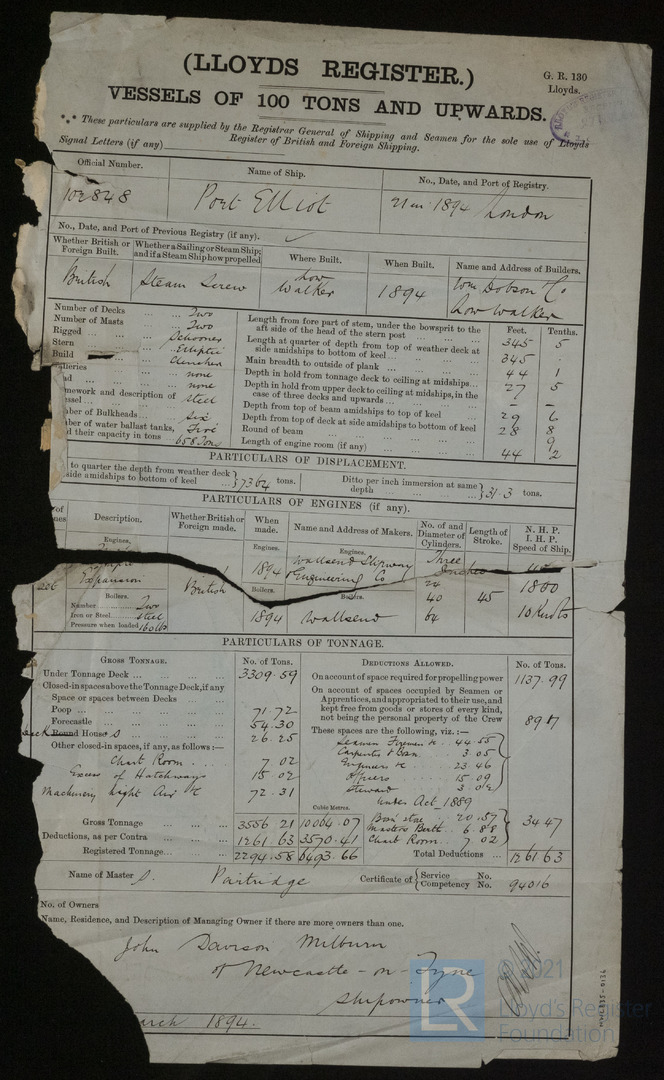 (LLOYDS REGISTER.)
G. R. 130
Lloyds.
VESSELS OF 100 TONS AND UPWARDS.
*** These particulars are supplied by the Registrar General of Shipping and Seamen for the sole use of Lloyds
Register of British and Foreign Shipping.
Signal Letters (if any)
Official Number. Name of Ship. No., Date, and Port of Registry.
102848 Port Elliot 1894 London
No., Date, and Port of Previous Registry (if any).
Whether British or Foreign Built. Whether a Sailing or Steam Ship; and if a Steam Ship how propelled Where Built. When Built. Name and Address of Builders.
British Steam Screw Low Walker 1894 Wm Dobson & Co Low Walker
Number of Decks ... ... Two
Number of Masts ... Two
Rigged ... ... Schooner
Stern ... ... Elliptic
Build ... Clencher
lleries ... none
ad ... ... none
mework and description of
essel ... ... steel
ber of Bulkheads ... Six
ber of water ballast tanks, Five
d their capacity in tons ... 658 Tons
Feet. Tenths.
Length from fore part of stem, under the bowsprit to the
aft side of the head of the stern post ... 345 5
Length at quarter of depth from top of weather deck at
side amidships to bottom of keel ... 345
Main breadth to outside of plank ... 44 1
Depth in hold from tonnage deck to ceiling at midships ... 27 5
Depth in hold from upper deck to ceiling at midships, in the
case of three decks and upwards ... - -
Depth from top of beam amidships to top of keel 29 6
Depth from top of deck at side amidships to bottom of keel 28 8
Round of beam ... 9
Length of engine room (if any) ... 44 2
PARTICULARS OF DISPLACEMENT.
to quarter the depth from weather deck
side amidships to bottom of keel ... } 7364 tons.
Ditto per inch immersion at same
depth ... } 31.3 tons.
PARTICULARS OF ENGINES (if any).
of Description. Whether British or Foreign made. When made. Name and Address of Makers. No. of and Diameter of Cylinders. Length of Stroke. N. H. P. I. H. P. Speed of Ship.
Engines. Engines. Engines.
Triple Expansion British 1894 Wallsend Slipway & Engineering Co Three
24 40 64 45 1800
10 Knots
Boilers. Boilers. Boilers.
Number ... Two
Iron or Steel ... steel
Pressure when loaded 160 lbs
1894 Wallsend
PARTICULARS OF TONNAGE.
GROSS TONNAGE. No. of Tons.
Under Tonnage Deck ... 3309.59
Closed-in spaces above the Tonnage Deck, if any
Space or spaces between Decks ...
Poop ... 71.72
Forecastle ... 54.30
Round House s 26.25
Other closed-in spaces, if any, as follows:-
Chart Room 7.02
Excess of Hatchways 15.02
Machinery Light Air &c 72.31
Cubic Metres.
Gross Tonnage 3556.21 10064.07
Deductions, as per Contra ... 1261.63 3570.41
Registered Tonnage ... 2294.58 6493.66
DEDUCTIONS ALLOWED. No. of Tons.
On account of space required for propelling power 1137.99
On account of spaces occupied by Seamen or
Apprentices, and appropriated to their use, and
kept free from goods or stores of every kind,
not being the personal property of the Crew 89.17
These spaces are the following, viz.:-
Seamen Firemen &c 44.55
Carpenter & Bosn 3.05
Engineers &c 23.46
Officers 15.09
Steward 3.02
Under Act 1889
Bosn store 20.57
Masters Berth 6.88
Chart Room 7.02
34.47
Total Deductions ... 1261.63
Name of Master Partridge
Certificate of { Service No.
Competency No. 94016
No. of Owners
Name, Residence, and Description of Managing Owner if there are more owners than one.
John Davison Milburn
of Newcastle-on-Tyne
Shipowner
arch 1894.
LR
© 2021
Lloyd's Register
Foundation